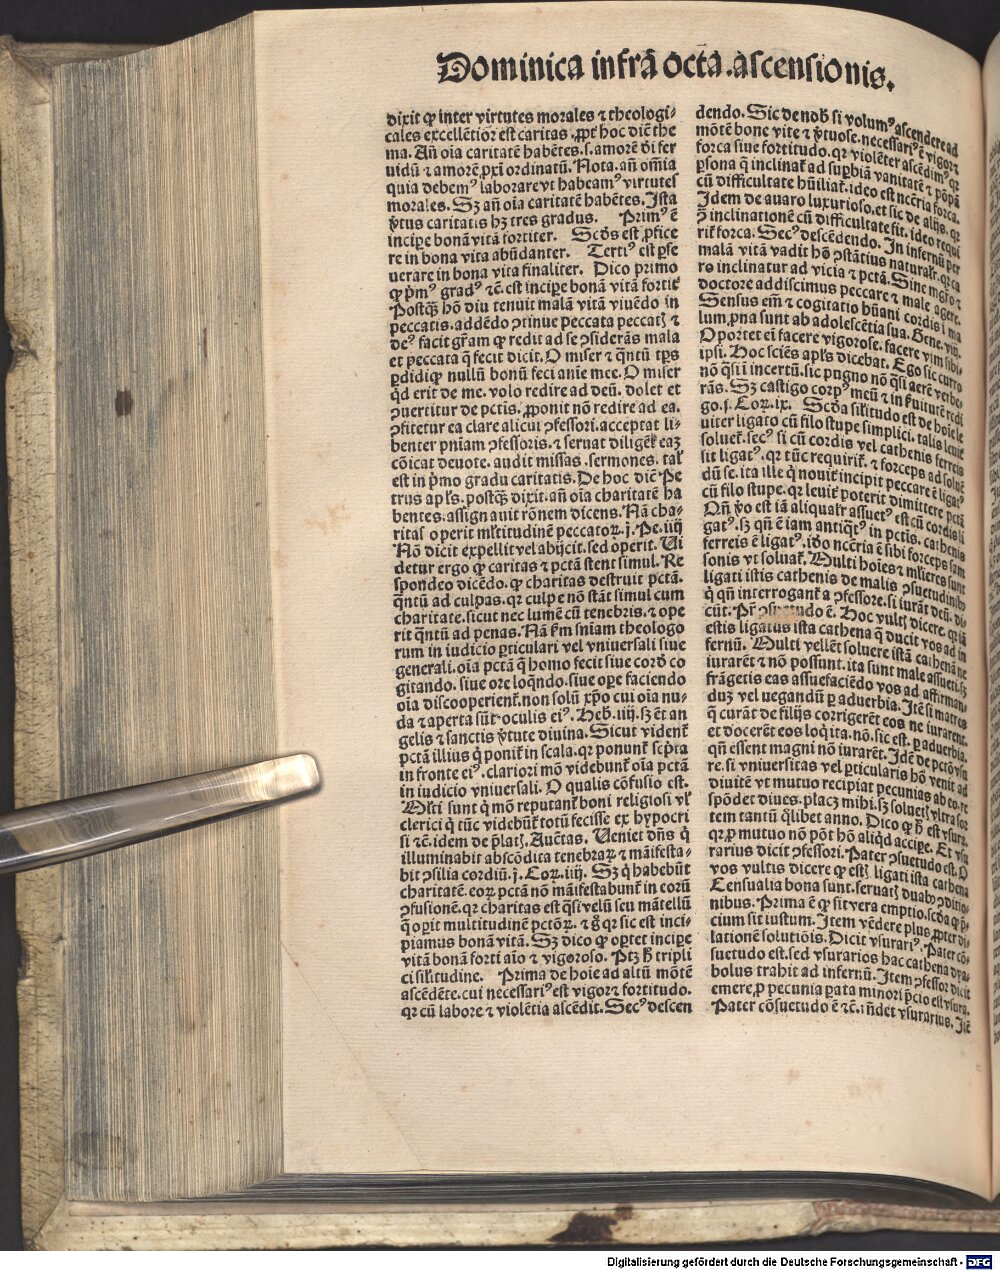 Dominica infrā octa.ascensionis.
dixit ꝙ inter virtutes morales ⁊ theologi-
cales excellētior est caritas.ꝓpt̕ hoc diē the
ma. Añ oīa caritatē habētes.s.amorē dī fer
uidū ⁊ amorē ꝓxi ordinatū. Nota.añ omīa
quia debemꝰ laborare vt habeamꝰ virtutes
morales. Sꝫ añ oīa caritatē habētes. Ista
v̕tus caritatis hꝫ tres gradus. Primꝰ ē
incipe bonā vitā fortiter. Scd̕s est ꝓfice
re in bona vita abūdanter. Tertiꝰ est ꝑse
uerare in bona vita finaliter. Dico primo
ꝙ p̕mꝰ gradꝰ ⁊c̄.est incipe bonā vitā fortit̕
Postqꝫ hō diu tenuit malā vitā viuēdo in
peccatis.addēdo ꝯtinue peccata peccatꝭ ⁊
deꝰ facit gr̄am ꝙ redit ad se ꝯsiderās mala
et peccata q̄ fecit dicit. O miser ⁊ q̄ntū tp̄s
ꝑdidi qꝛ nullū bonū feci anīe mee. O miser
qd̕ erit de me. volo redire ad deū. dolet et
ꝯuertitur de pctis. ꝓponit nō redire ad ea.
ꝯfitetur ea clare alicui ꝯfessori.acceptat li-
benter pniam ꝯfessoris. ⁊ seruat diligēt̕ eaꝫ
cōicat deuote. audit missas.sermones. tal̕
est in p̕mo gradu caritatis. De hoc diē Pe
trus apl̄s. postqꝫ dixit. añ oīa charitatē ha
bentes. assignauit rōnem dicens. Nā cha-
ritas operit ml̕titudinē peccatoꝝ. j. Pe. iiij
Nō dicit expellit vel abijcit. sed operit. Ui
detur ergo ꝙ caritas ⁊ pctā stent simul. Re
spondeo dicēdo. ꝙ charitas destruit pctā.
q̄ntū ad culpas. qꝛ culpe nō stāt simul cum
charitate. sicut nec lumē cū tenebris. ⁊ ope
rit q̄ntū ad penas. Nā ẜm sniam theologo
rum in iudicio ꝑticulari vel vniuersali siue
generali. oīa pctā q̄ homo fecit siue cord̕ co
gitando. siue ore loq̄ndo. siue oꝑe faciendo
oīa discooperient̕. non solū xp̄o cui oīa nu-
da ⁊ aperta sūt oculis eiꝰ. Heb̕. iiij. sꝫ ēt an
gelis ⁊ sanctis v̕tute diuina. Sicut vident̕
pctā illius q̇ ponit̕ in scala. qꝛ ponunt̕ scp̄ta
in fronte eiꝰ. clariori mō videbunt̕ oīa pctā
in iudicio vniuersali. O qualis cōfusio est.
Ml̕ti sunt q̇ mō reputant̕ boni religiosi vl̕
clerici q̇ tūc videbūt̕ totū fecisse ex hypocri
si ⁊c̄. idem de p̄latꝭ. Auc̄tas. Ueniet dn̄s q̇
illuminabit abscōdita tenebraꝝ ⁊ māifesta-
bit ꝯsilia cordiū. j. Coꝝ. iiij. Sꝫ q̇ habebūt
charitatē. eoꝝ pctā nō māifestabunt̕ in eorū
ꝯfusionē. qꝛ charitas est q̄si velū seu mātellū
q̄ oꝑit multitudinē pctōꝝ. ⁊ g̊ qꝛ sic est inci-
piamus bonā vitā. Sꝫ dico ꝙ oꝑtet incipe
vitā bonā forti aīo ⁊ vigoroso. Ptꝫ h̕ tripli
ci sil̕itudine. Prima de hoīe ad altū mōtē
ascēdēte. cui necessariꝰ est vigor ⁊ fortitudo.
qꝛ cū labore ⁊ violētia ascēdit. Secꝰ descen
dendo. Sic de nob̕ si volumꝰ ascendere ad
mōtē bone vite ⁊ v̕tuose. necessariꝰ ē vigor ⁊
forca siue fortitudo. qꝛ violēter ascēdimꝰ qꝛ
ꝑsona q̄ inclinat̕ ad suꝑbiā vanitatē ⁊ pōpā
cū difficultate hūiliat̕. ideo est nccēria forca.
Idem de auaro luxurioso. et sic de alijs. qꝛ
ꝯ̄ inclinationē cū difficultate fit. ideo requi
rit̕ forca. Secꝰ descēdendo. In infernū per
malā vitā vadit hō ꝯstātius naturalr̕. qꝛ ca
ro inclinatur ad vicia ⁊ pctā. Sine mgr̄o ⁊
doctore addiscimus peccare ⁊ male agere.
Sensus em̄ ⁊ cogitatio hūani cordis ī ma
lum ꝓna sunt ab adolescētia sua. Gene. viij.
Oportet eī facere vigorose. facere vim sibi-
ipsi. Hoc sciēs apl̄s dicebat. Ego sic curro
nō q̄si ī incertū. sic pugno nō q̄si aerē verbe-
rās. Sꝫ castigo corpꝰ meū ⁊ in ẜuitutē redi
go. j. Coꝝ. ix. Scd̕a sil̕itudo est de hoīe le
uiter ligato cū filo stupe simplici. talis leuit̕
soluet̕. secꝰ si cū cordis vel cathenis ferreis
sit ligatꝰ. qꝛ tūc requirit̕. ⁊ forceps ad soluē
dū se. ita ille q̇ nouit̕ incipit peccare ē ligatꝰ
cū filo stupe. qꝛ leuit̕ poterit dimittere pctā
Qñ v̕o est iā aliqualr̕ assuetꝰ est cū cordis li
gatꝰ. sꝫ qñ ē iam antiq̄tꝰ in pctis. cathenis
ferreis ē ligatꝰ. iō ncc̄ria ē sibi forceps sam
sonis vt soluat̕. Multi hoīes ⁊ ml̕ieres sunt
ligati istis cathenis de malis ꝯsuetudinibꝰ
q̇ qñ interrogant̕ a ꝯfessore. si iurāt deū. di-
cūt. Pr̄ ꝯsuetudo ē. Hoc vultꝭ dicere. qꝛ iā
estis ligatus ista cathena q̄ ducit vos ad in
fernū. Multi vellēt soluere istā cathenā ne
iurarēt ⁊ nō possunt. ita sunt male assueti. sꝫ
frāgetis eas assuefaciēdo vos ad affirman-
duꝫ vel negandū ꝑ aduerbia. Itē si matres
q̄ curāt de filijs corrigerēt eos ne iurarent.
et docerēt eos loq̇ ita. nō. sic est. ꝑ aduerbia.
qñ essent magni nō iurarēt. Idē de pctō vsu
re. si vniuersitas vel ꝑticularis hō venit ad
diuitē vt mutuo recipiat pecunias ab eo. re
spōdet diues. placꝫ mihi. sꝫ soluetꝭ vltra sor
tem tantū q̄libet anno. Dico ꝙ h̕ est vsura.
qꝛ ꝑ mutuo nō pōt hō aliq̇d accipe. Et vsu
rarius dicit ꝯfessori. Pater ꝯsuetudo est. O
vos vultis dicere ꝙ estꝭ ligati ista cathena
Censualia bona sunt. seruatꝭ duabꝰ ꝯditio-
nibus. Prima ē ꝙ sit vera emptio. scd̕a ꝙ p̕-
cium sit iustum. Item vēdere plus ꝓpter di-
lationē solutiōis. Dicit vsurariꝰ. Pater cō-
suetudo est. sed vsurarios hac cathena dya-
bolus trahit ad infernū. Item ꝯfessor dicit
emere. ꝑ pecunia ꝑata minori p̕cio est vsura.
Pater cōsuetudo ē ⁊c̄. rñdet vsurarius. Itē
Digitalisierung gefördert durch die Deutsche Forschungsgemeinschaft - DFG